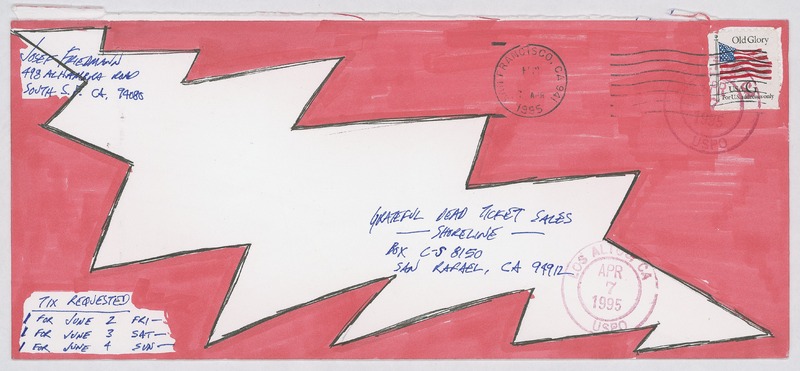 Josef Friedmann
498 Alhambra Road
South S.F. CA. 94080
FRANCISCO, CA 941
1995
Old Glory
USA G
For U.S. addresses only
USPO
GRATEFUL DEAD TICKET SALES
— SHORELINE —
BOX C-S 8150
SAN RAFAEL, CA 94912
LOS ALTOS CA
APR
7
1995
USPO
TIX REQUESTED
1 FOR JUNE 2 FRI—
1 FOR JUNE 3 SAT—
1 FOR JUNE 4 SUN—